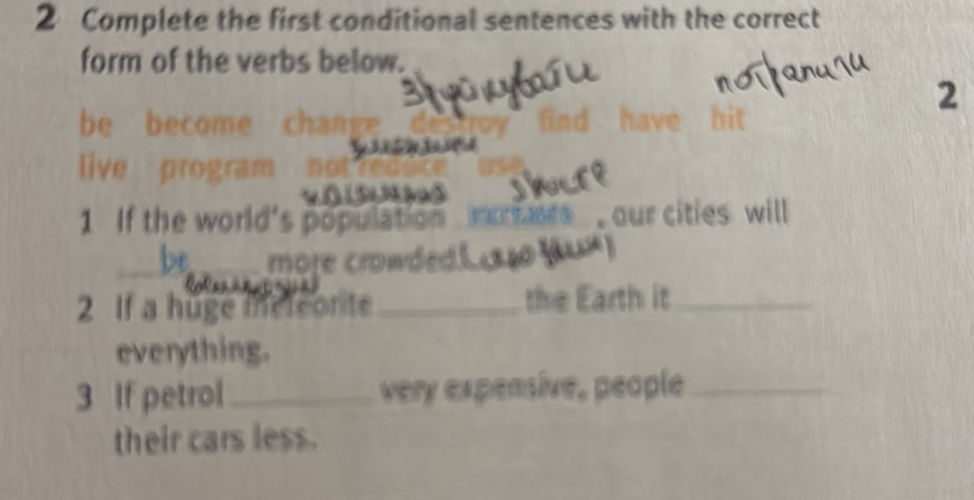 2 Complete the first conditional sentences with the correct
form of the verbs below.
2
be become change destroy find have hit
live program not reduce use
1 If the world's population increases, our cities will
be more crowded.
2 If a huge meteorite ______ the Earth it ______
everything.
3 If petrol ______ very expensive, people ______
their cars less.